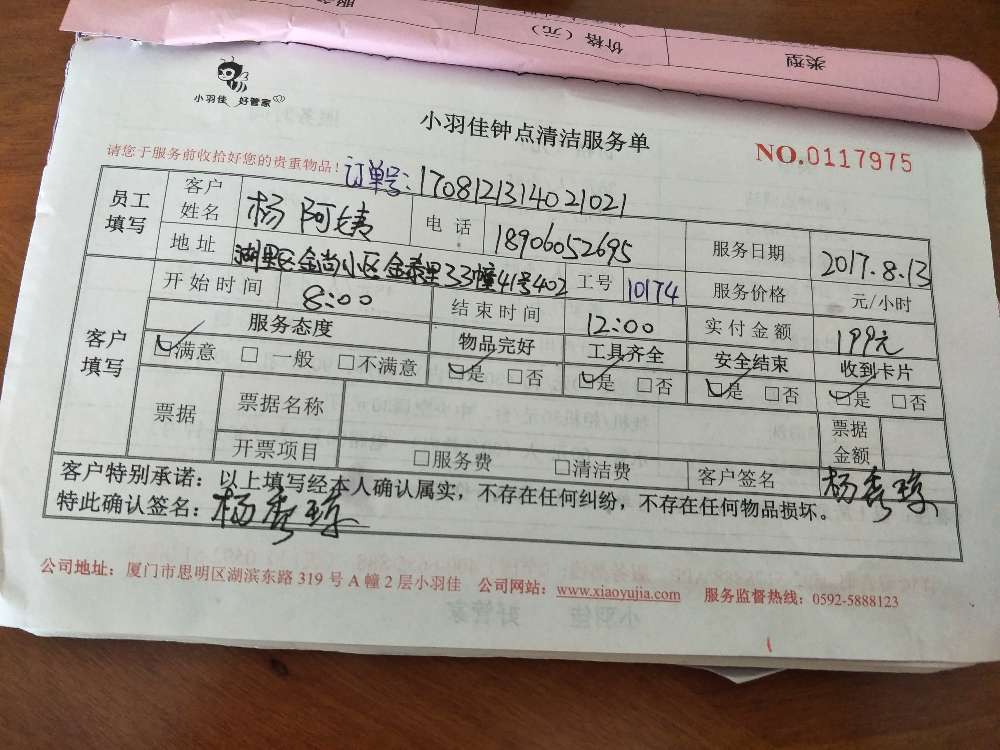 类型
价格（元）
小羽佳 好管家
小羽佳钟点清洁服务单
NO.0117975
请您于服务前收拾好您的贵重物品！
订单号：1708121314021021
员工填写 客户姓名 杨阿姨 电话 18906052695 服务日期 2017.8.13
地址 湖里区金尚小区金泰里33幢41号402 工号 10174 服务价格 元/小时
客户填写 开始时间 8:00 结束时间 12:00 实付金额 199元
服务态度 物品完好 工具齐全 安全结束 收到卡片
☑满意 □一般 □不满意 ☑是 □否 ☑是 □否 ☑是 □否 ☑是 □否
票据 票据名称 票据金额
开票项目 □服务费 □清洁费 客户签名 杨秀琼
客户特别承诺：以上填写经本人确认属实，不存在任何纠纷，不存在任何物品损坏。
特此确认签名：杨秀琼
公司地址：厦门市思明区湖滨东路 319 号 A 幢 2 层小羽佳 公司网站：www.xiaoyujia.com 服务监督热线：0592-5888123